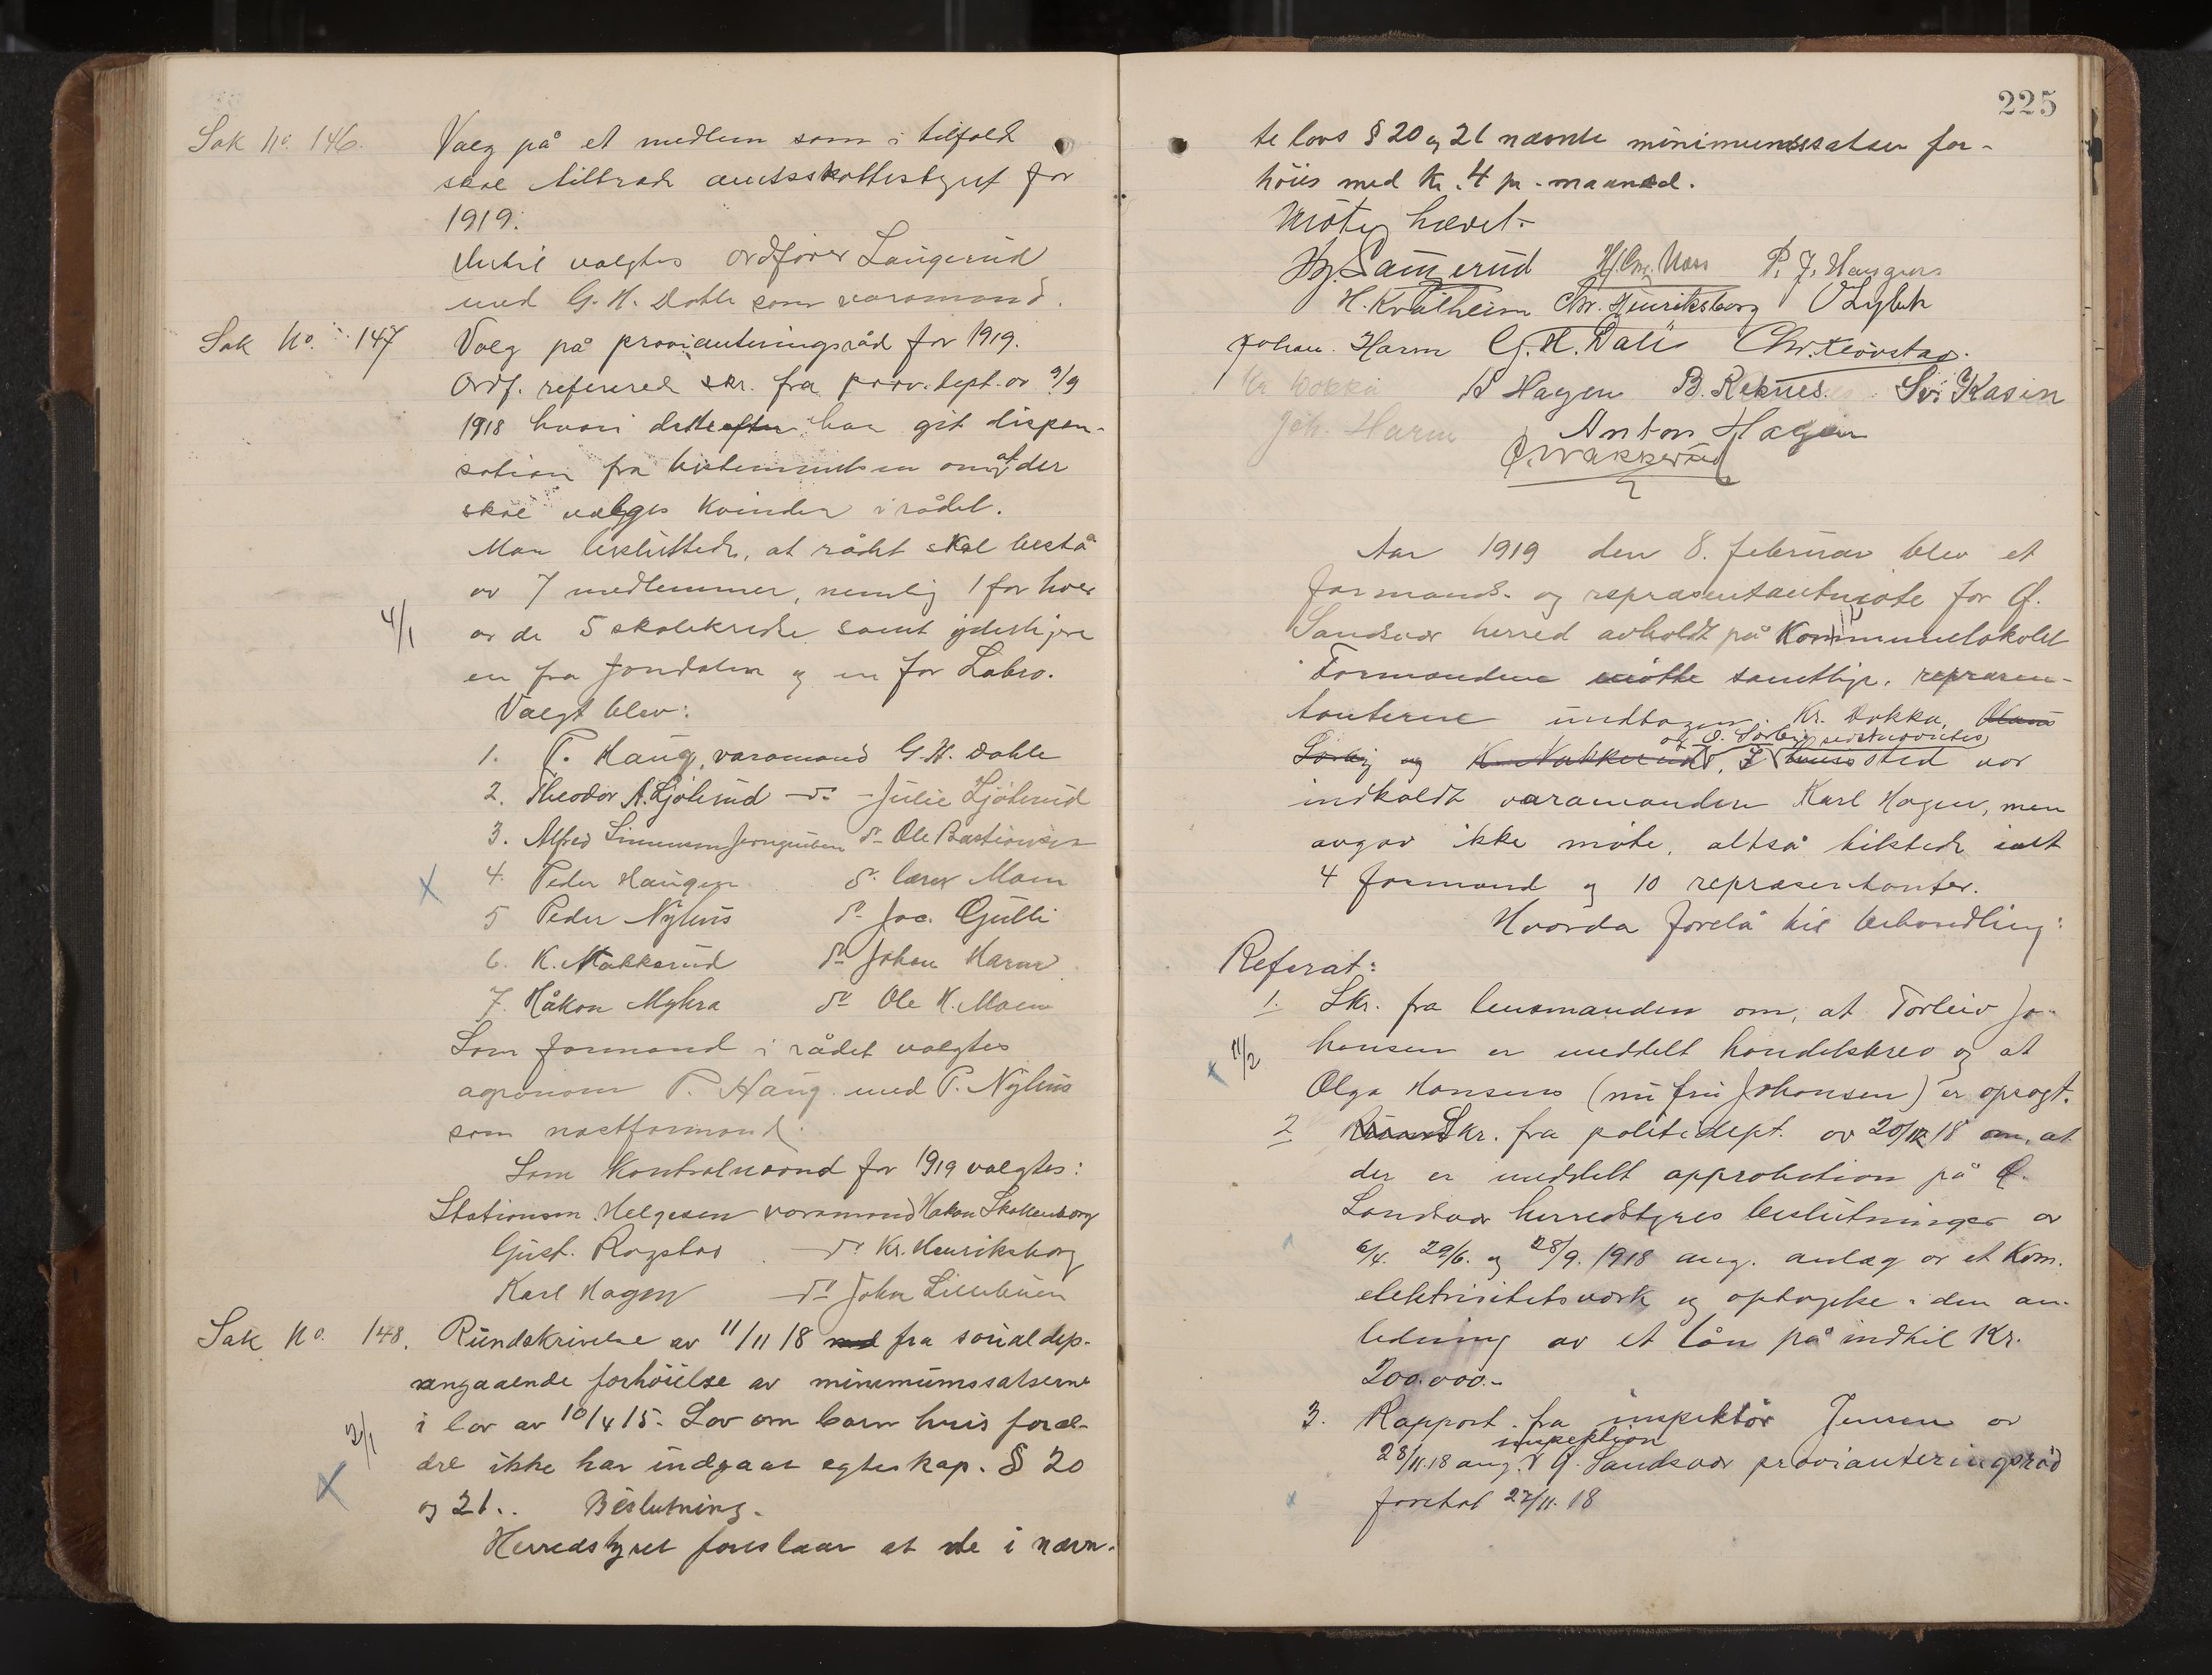 Sak No. 146. Valg på et medlem som i tilfælde
skal tiltræde amtsskattestyret for
1919.
Dertil valgtes ordfører Laugerud
med G. H. Dahle som varamand.
Sak No. 147 Valg på provianteringsråd for 1919.
Ordf. refererede skr. fra prov. dept. av 9/9
1918 hvori dette efter har git dispen-
sation fra bestemmelsen om at der
skal vælges kvinder i rådet.
Man besluttede, at rådet skal bestå
av 7 medlemmer, nemlig 1 for hver
4/1 av de 5 skolekredse samt yderligere
en fra Jondalen og en for Labro.
Valgt blev:
1. P. Haug, varamand G. H. Dahle
2. Theodor A. Ljøterud – do – Julie Ljøterud
3. Alfred Simensen Jerngruben do Ole Bastiansen
X 4. Peder Haugen do lærer Moen
5 Peder Nyhus do Jac. Gulli
6. K. Nakkerud do Johan Harar
7. Håkon Myhra do Ole H. Moen
Som formand i rådet valgtes
agronom P. Haug med P. Nyhus
som næstformand.
Som kontrolnævnd for 1919 valgtes:
Stationsm. Helgesen varamand Hakon Skollenborg
Gust. Rogstad – do Kr. Henriksborg
Karl Hagen – do John Lillebuen
Sak No. 148. Rundskrivelse av 11/11 18 med fra socialdep.
angaaende forhöielse av minimumssatserne
2/1 i lov av 10/4 15. Lov om barn hvis foræl-
X dre ikke har indgaat egteskap. § 20
og 21.. Beslutning.
Herredstyret foreslaar at de i nævn-
225
te lovs § 20 og 21 nævnte minimumssatser for-
höies med Kr. 4 pr. maaned.
Mötet hævet.
Hj. Laugerud Hj. Chr. Moss P. J. Haugerus
H. Kvalheim Chr. Henriksborg O Lybek
Johan Harm G. H. Dali Chr. Kløvstad.
Kr Dokka K Hagen B. Reknes. Svi Kasin
Joh. Harm Anton Hagen
O. Wakkerud
Aar 1919 den 8. februar blev et
formands- og repræsentantmöte for Ø.
Sandsvær herred avholdt på Kommunelokalet
Formændene mötte samtlige, repræsen-
tanterne undtagen Kr. Dokka, Hans
og O. Sørby, sidstnævntes
Sørby og K. Nakkerud. I hvis sted var
indkaldt varamanden Karl Hagen, men
avgav ikke möte, altså tilstede ialt
4 formænd og 10 repræsentanter.
Hvorda forelå til behandling:
Referat:
1. Skr. fra lensmanden om, at Torleiv Jo-
x 11/2 hansen er meddelt handelsbrev og at
Olga Hansens (nu fru Johansen) er opsagt.
2 Skr. fra politidept. av 20/12 18 om, at
der er meddelt approbation på Ø.
Sandsvær herredstyres beslutninger av
6/4. 29/6. og 28/9. 1918 ang. anlæg av et kom.
elektricitetsverk og optagelse i den an-
ledning av et lån på indtil Kr.
200.000.-
3. Rapport fra inspektør Jensen av
inspektion
28/11.18 ang. v Ø. Sandsvær provianteringsråd
x foretat 27/11. 18